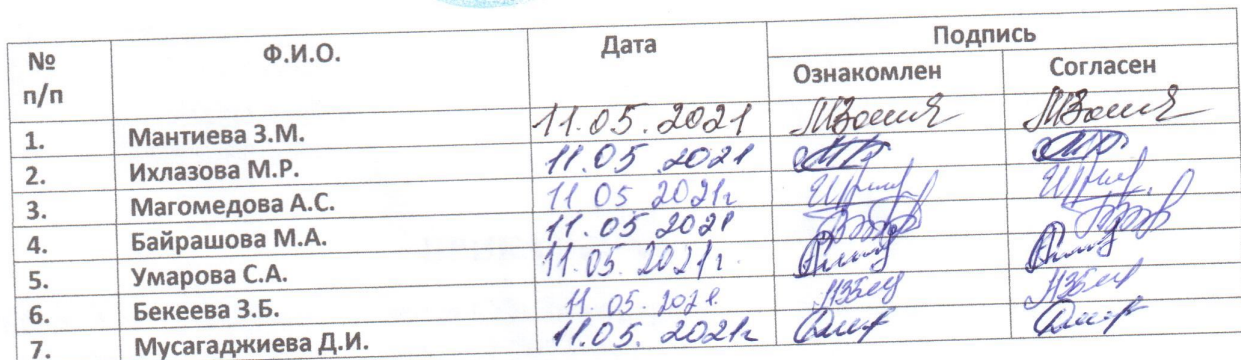 № п/п Ф.И.О. Дата Подпись
Ознакомлен Согласен
1. Мантиева З.М. 11.05.2021
2. Ихлазова М.Р. 11.05.2021
3. Магомедова А.С. 11 05 2021г
4. Байрашова М.А. 11.05 2021
5. Умарова С.А. 11.05. 2021г.
6. Бекеева З.Б. 11.05.2021.
7. Мусагаджиева Д.И. 11.05. 2021г